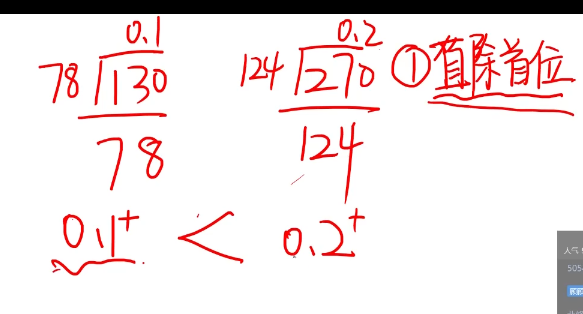 0.1
78 130
78
0.2
124 270
124
①直除首位
0.1+ < 0.2+
人气
505